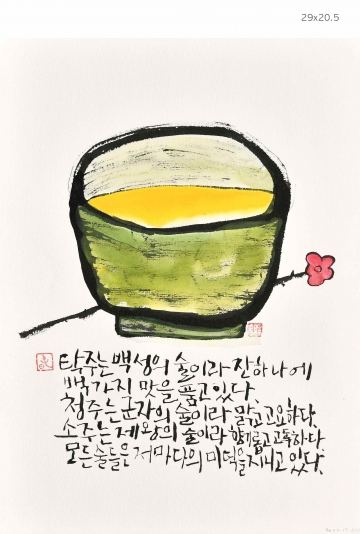 29x20.5
탁주는 백성의 술이라 잔하나에
백가지 맛을 품고있다.
청주는 군자의 술이라 맑고고요하다.
소주는 제왕의 술이라 향기롭고고독하다.
모든술들은 저마다의 미덕을 지니고 있다.